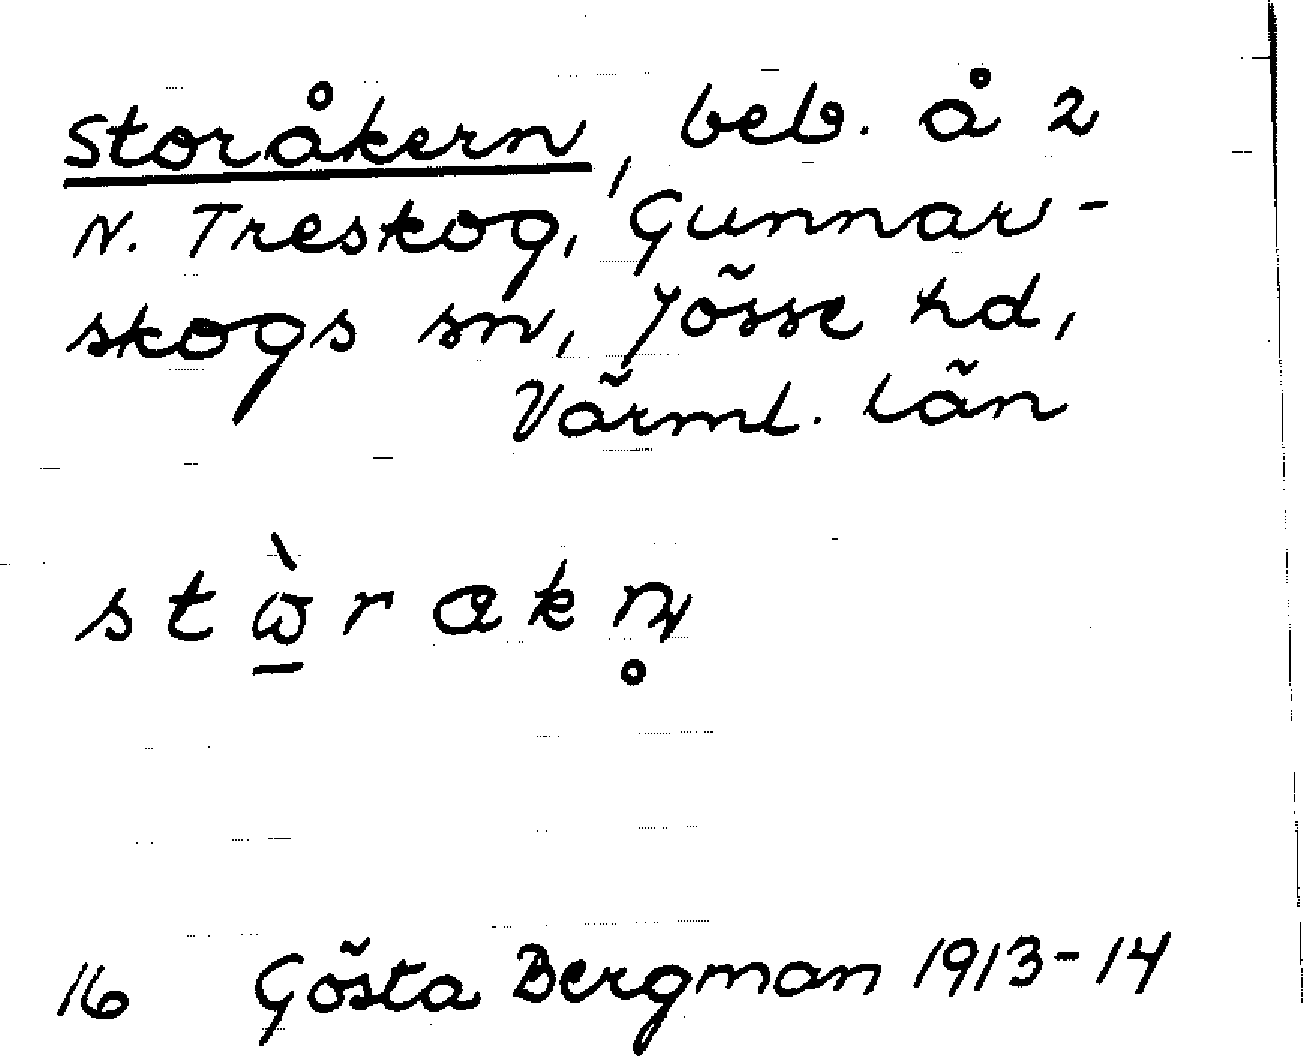 Storåkern, beb. å 2
N. Treskog, Gunnar-
skogs sn, Jösse hd,
Värml. län
16 Gösta Bergman 1913-14